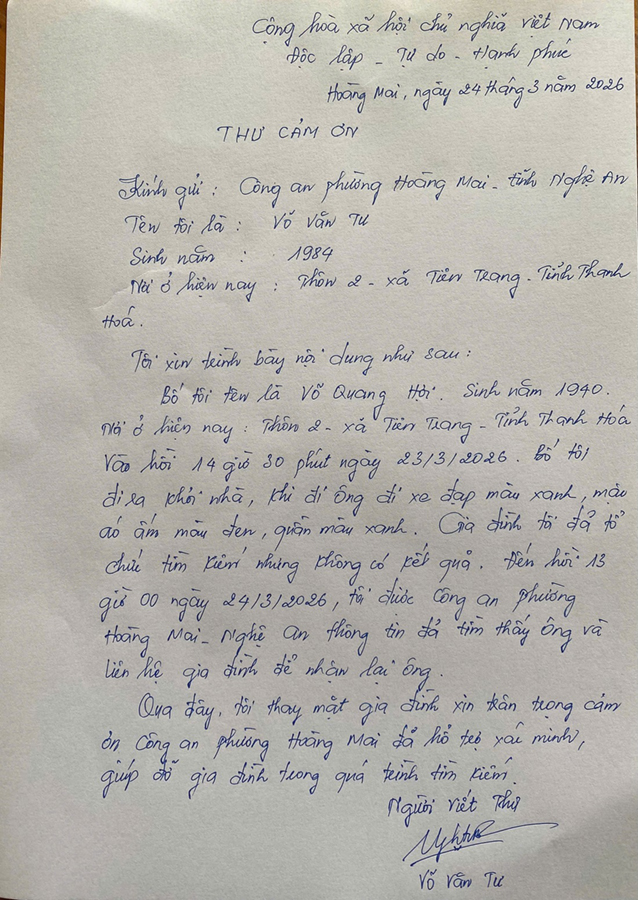 Cộng hoà xã hội chủ nghĩa Việt Nam
Độc lập - Tự do - Hạnh phúc
Hoàng Mai, ngày 24 tháng 3 năm 2026
THƯ CẢM ƠN
Kính gửi : Công an phường Hoàng Mai - tỉnh Nghệ An
Tên tôi là : Võ Văn Tư
Sinh năm : 1984
Nơi ở hiện nay : Thôn 2 - xã Tiên Trang - Tỉnh Thanh
Hoá.
Tôi xin trình bày nội dung như sau :
Bố tôi tên là Võ Quang Hới. Sinh năm 1940.
Nơi ở hiện nay : Thôn 2 - xã Tiên Trang - Tỉnh Thanh Hóa
Vào hồi 14 giờ 30 phút ngày 23/3/2026. Bố tôi
đi ra khỏi nhà, khi đi ông đi xe đạp màu xanh, mặc
áo ấm màu đen, quần màu xanh. Gia đình tôi đã tổ
chức tìm kiếm nhưng không có kết quả. Đến hồi 13
giờ 00 ngày 24/3/2026, tôi được Công an phường
Hoàng Mai - Nghệ An thông tin đã tìm thấy ông và
liên hệ gia đình để nhận lại ông.
Qua đây, tôi thay mặt gia đình xin trân trọng cảm
ơn Công an phường Hoàng Mai đã hỗ trợ xác minh,
giúp đỡ gia đình trong quá trình tìm kiếm.
Người viết thư
Võ Văn Tư